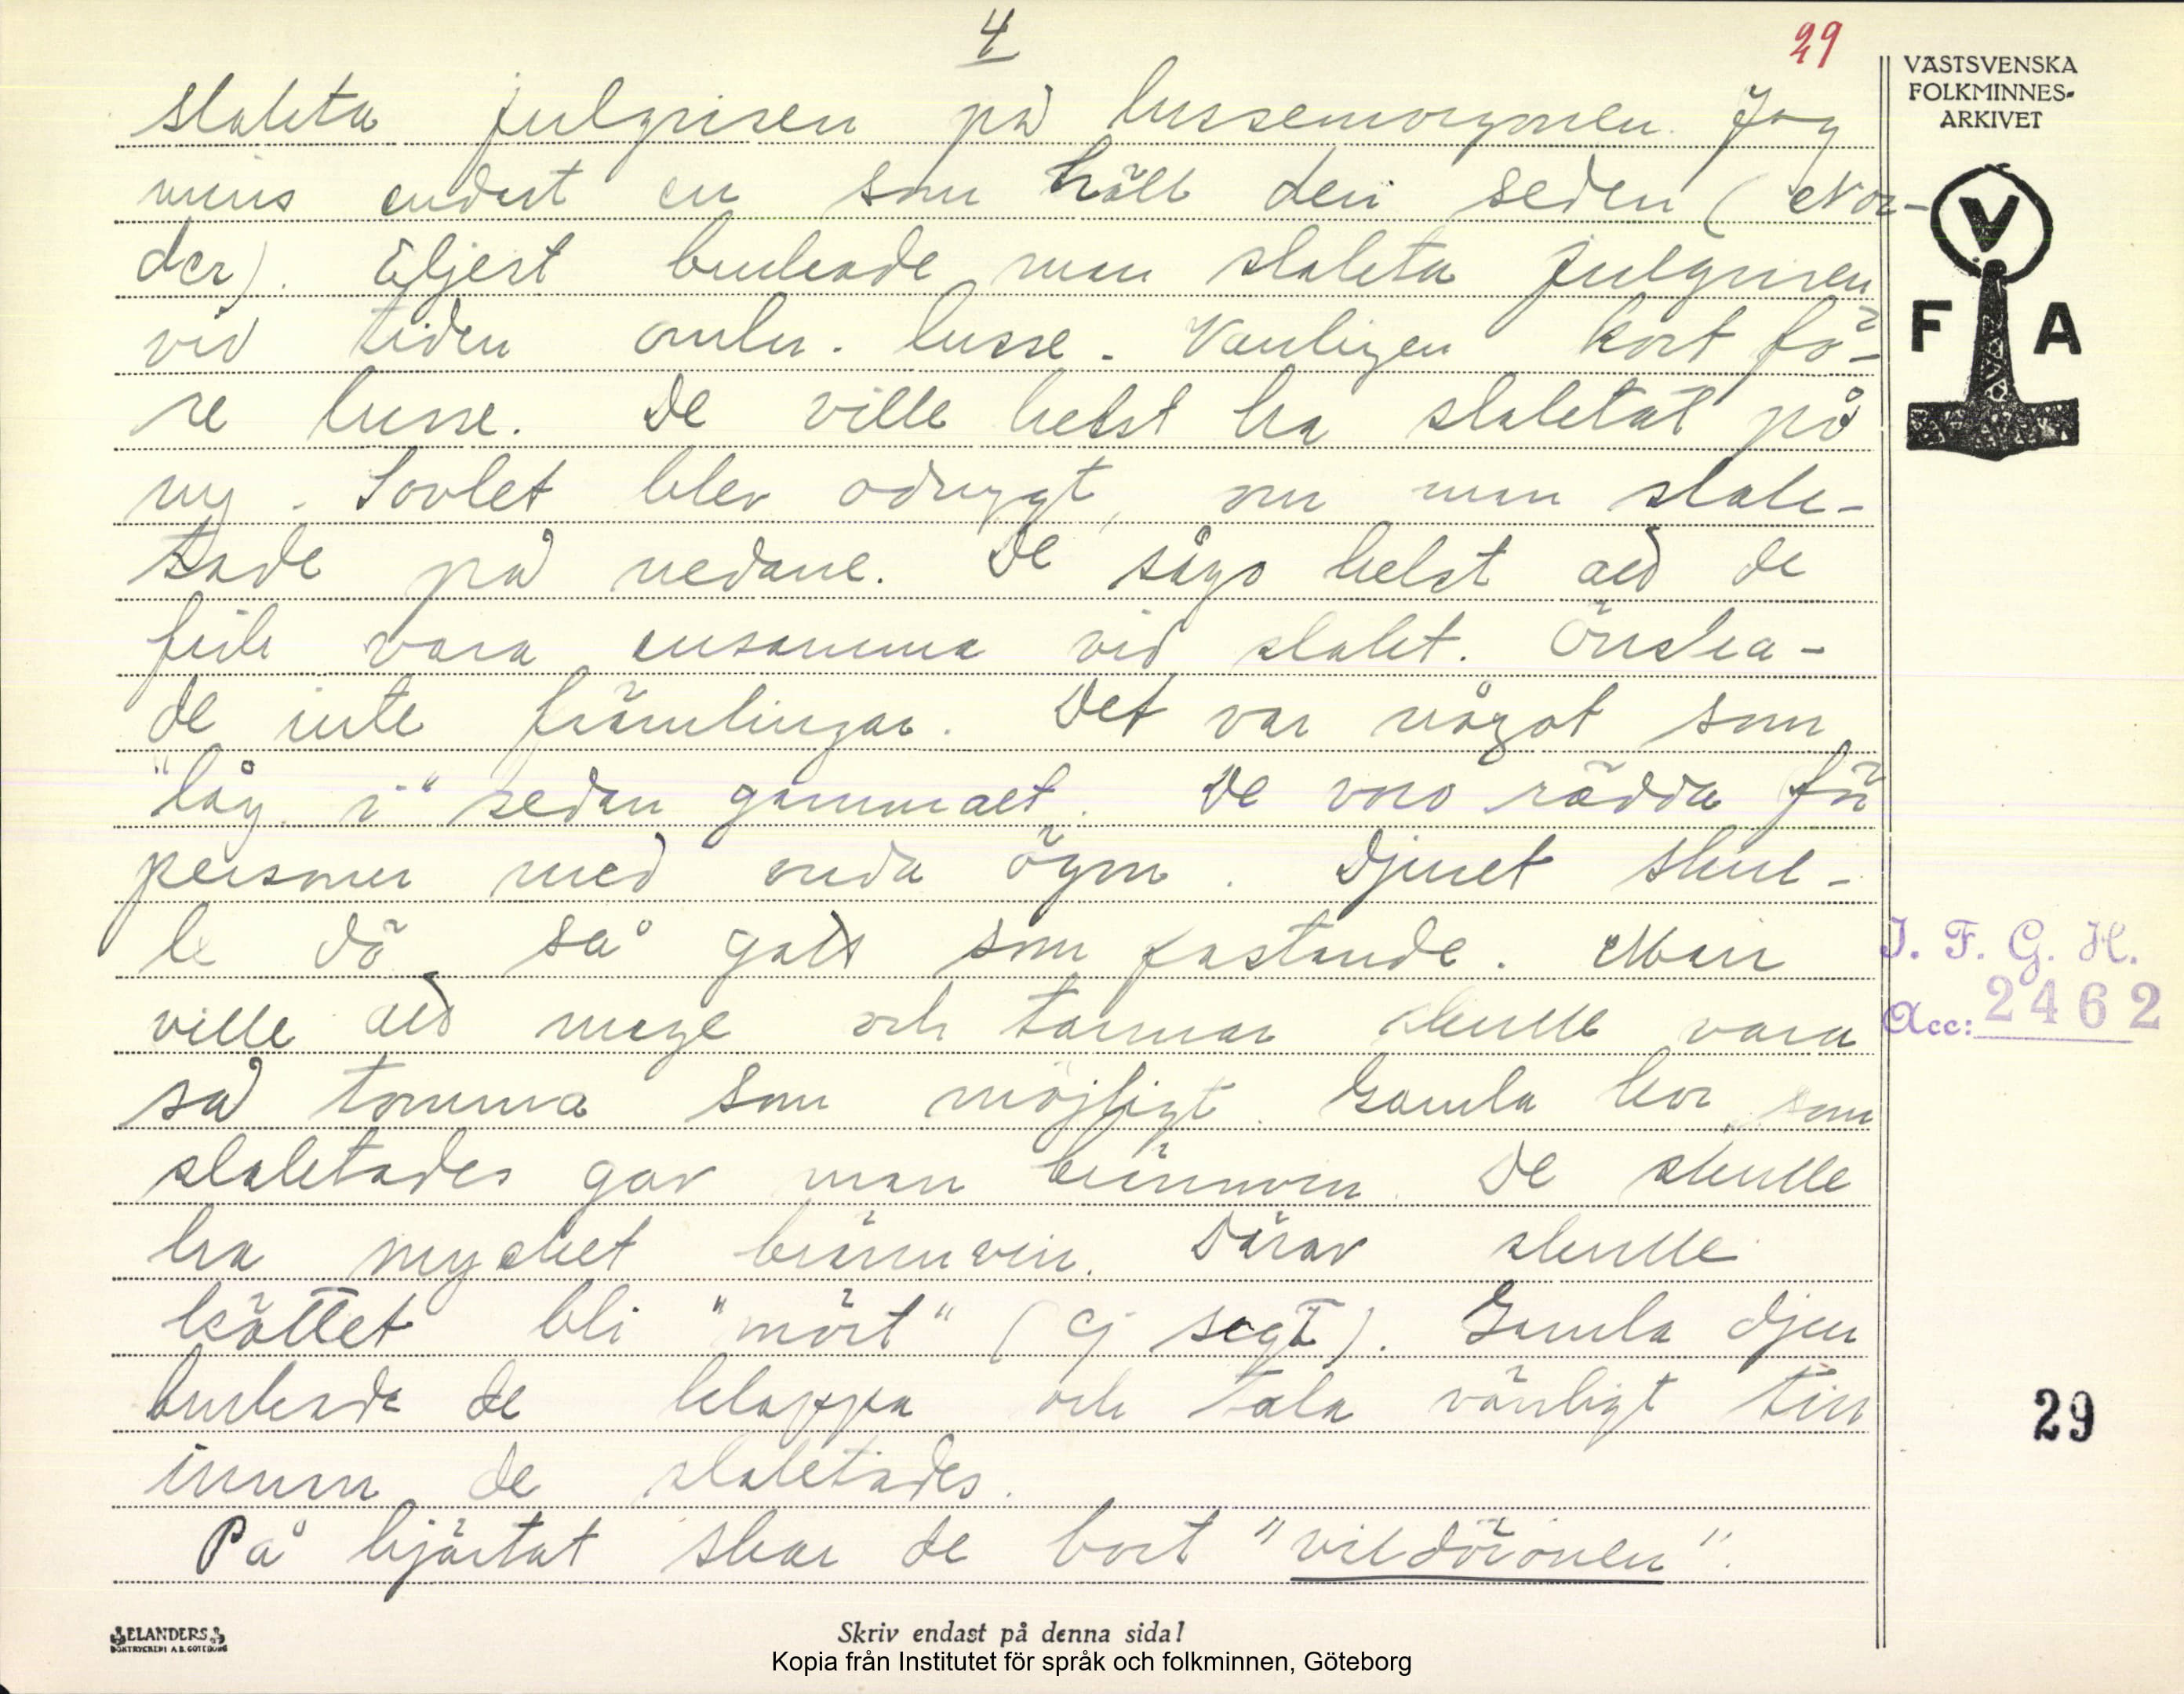 4
29
VÄSTSVENSKA
FOLKMINNES-
ARKIVET
slakta julgrisen på lussemorgonen. Jag
mins endast en som höll den seden (Nor-
der). Eljest brukade man slakta julgrisen
vid tiden omkr. lusse. Vanligen kort fö-
re lusse. De ville helst ha slaktat på
ny. Sovlet blev odrygt, om man slak-
tade på nedane. De sågo helst att de
fick vara ensamma vid slakt. Önska-
de inte främlingar. Det var något som
"låg i" sedan gammalt. De voro rädda för
personer med onda ögon. Djuret skul-
le dö så gott som fastande. Man
ville att mage och tarmar skulle vara
så tomma som möjligt. Gamla kor som
slaktades gav man brännvin. De skulle
ha mycket brännvin. Därav skulle
köttet bli "mört" (ej segt). Gamla djur
brukade de klappa och tala vänligt till
innan de slaktades.
På hjärtat skar de bort "vildöronen".
V
F A
I. F. G. H.
Acc: 2462
29
ELANDERS
BOKTRYCKERI A.B. GÖTEBORG
Skriv endast på denna sida!
Kopia från Institutet för språk och folkminnen, Göteborg